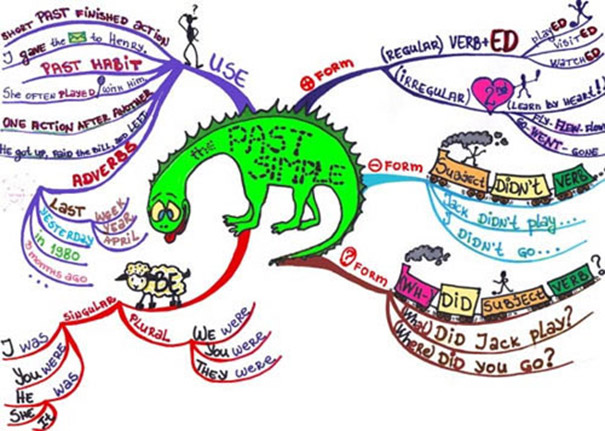 the PAST SIMPLE
USE
SHORT PAST FINISHED ACTION
I gave the to HENRY.
PAST HABIT
She OFTEN PLAYED with him
ONE ACTION AFTER ANOTHER
He got up, paid the bill, and LEFT
ADVERBS
LAST
WEEK
YEAR
APRIL
YESTERDAY
in 1980
MONTHS AGO
...
⊕ FORM
(REGULAR) VERB+ED
playED
visitED
watchED
(IRREGULAR) 2nd (LEARN by HEART!!)
FLY-FLEW-FLOWN
GO-WENT-GONE
⊖ FORM
SUBJECT DIDN'T VERB
Jack DIDN'T play...
I DIDN'T GO...
? FORM
(WH-) DID SUBJECT VERB?
(What) DID Jack play?
(Where) DID you GO?
BE
SINGULAR
I was
You WERE
HE
SHE
It
was
PLURAL
WE were
You were
THEY were